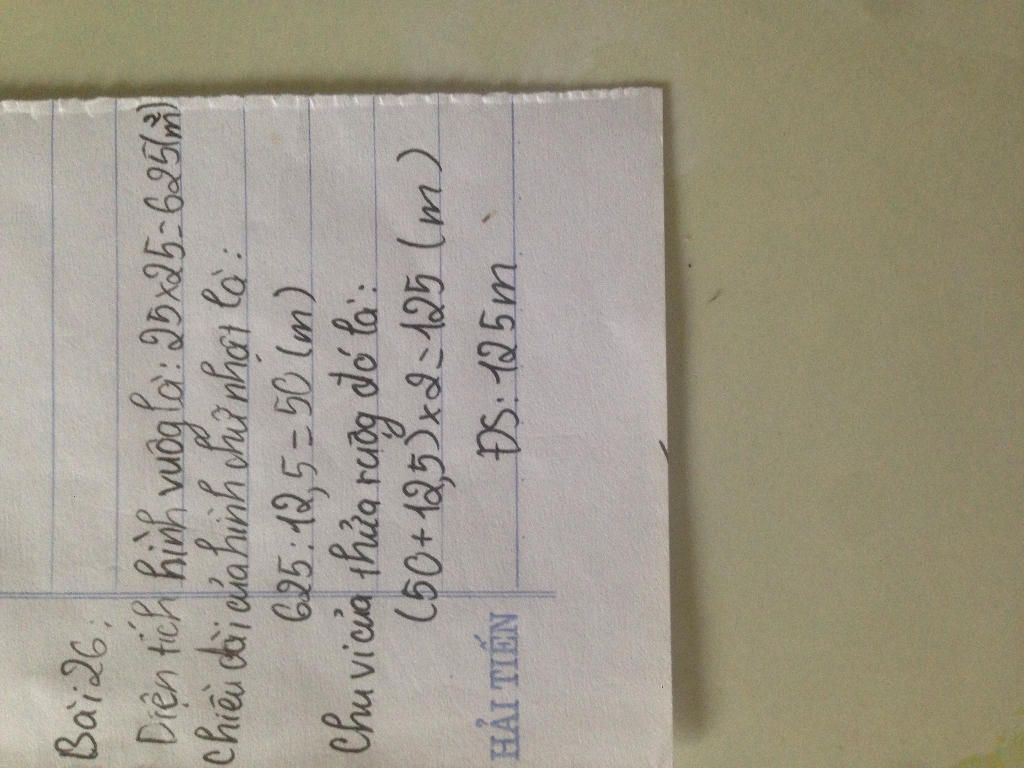 Bài 26:
Diện tích hình vuôg là: 25x25=625(m²)
chiều dài của hình chữ nhật là:
625:12,5=50(m)
Chu vi của thửa ruộg đó là:
(50+12,5)x2=125(m)
ĐS: 125m
HẢI TIẾN